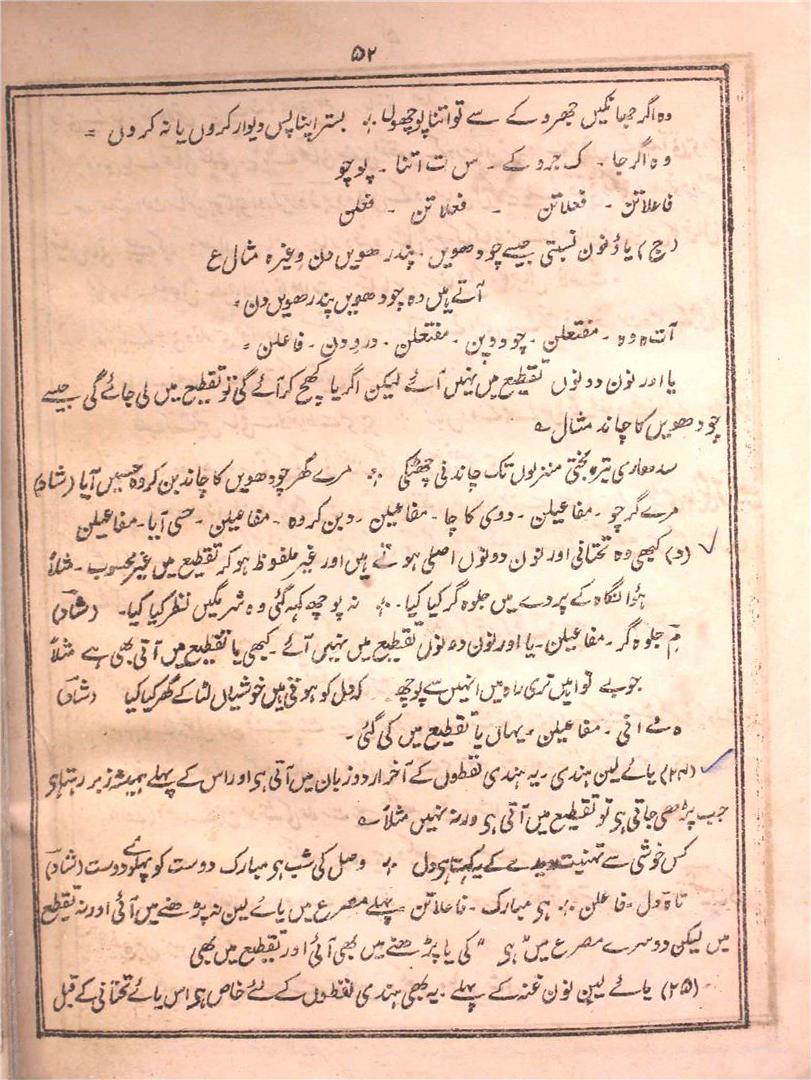 ۵۲
وہ اگر جھانکیں جھروکے سے تو اتنا پوچھوں ؛ بستر اپنا پس دیوار کروں یا نہ کروں =
وہ اگر جا ۔ ک جرو کے ۔ س ت اتنا ۔ پو چو
فاعلاتن ۔ فعلاتن ۔ فعلاتن ۔ فعلن
(ج) یا و نون نسبتی جیسے چودھویں ۔ پندرھویں دن وغیرہ مثال ع
آتے ہیں وہ چودھویں پندرھویں دن ۔
آت ہ وہ ۔ مفتعلن ۔ چو دوپن ۔ مفتعلن ۔ درو دن ۔ فاعلن =
یا اور نون دونوں تقطیع میں نہیں آئے لیکن اگر یا کھچ کر آئے گی تو تقطیع میں لی جائے گی جیسے
چودھویں کا چاند مثال ے
سدھاری تیرہ بختی منزلوں تک چاندنی چھٹکی ؛ مرے گھر چودھویں کا چاند بن کر وہ حسیں آیا (شاد)
مرے گر چو ۔ مفاعیلن ۔ دوی کا چا ۔ مفاعیلن ۔ دبن کر وہ ۔ مفاعیلن ۔ حسی آیا ۔ مفاعیلن
(د) کبھی وہ تحتانی اور نون دونوں اصلی ہوتے ہیں اور غیر ملفوظ ہو کر تقطیع میں غیر محسوب ۔ مثلاً
ہوا نگاہ کے پردے میں جلوہ گر کیا کیا ۔ ؛ نہ پوچھ کہہ گئی وہ شرمگیں نظر کیا کیا ۔ (شاد)
مِ جلوہ گر ۔ مفاعیلن ۔ یا اور نون دونوں تقطیع میں نہیں آئے ۔ کبھی یا تقطیع میں آتی بھی ہے مثلاً
جو پے نوا ہیں تری راہ میں انہیں سے پوچھ کہ دل کو ہوتی ہیں خوشیاں لٹا کے گھر کیا کیا (شاد)
ہ تے ہی ۔ مفاعیلن ۔ یہاں یا تقطیع میں لی گئی ۔
(۲۴) یائے لین ہندی ۔ یہ ہندی لفظوں کے آخر اردو زبان میں آتی ہی اور اس کے پہلے ہمیشہ زبر رہتا ہی
جب پڑھی جاتی ہی تو تقطیع میں آتی ہی ورنہ نہیں مثلاً ے
کس خوشی سے تہنیت دیدے کے یہ کہتا ہی دل ؛ وصل کی شب ہی مبارک دوست کو پہلوئے دوست (شاد)
تا ہ دل = فاعلن ؛ ہی مبارک ۔ فاعلاتن پہلے مصرع میں یائے لین نہ پڑھنے میں آئی اور نہ تقطیع
میں لیکن دوسرے مصرع میں "ہی" کی یا پڑھنے میں بھی آئی اور تقطیع میں بھی
(۲۵) یائے لین نون غنہ کے پہلے ۔ یہ بھی ہندی لفظوں کے لئے خاص ہی اس یائے تحتانی کے قبل